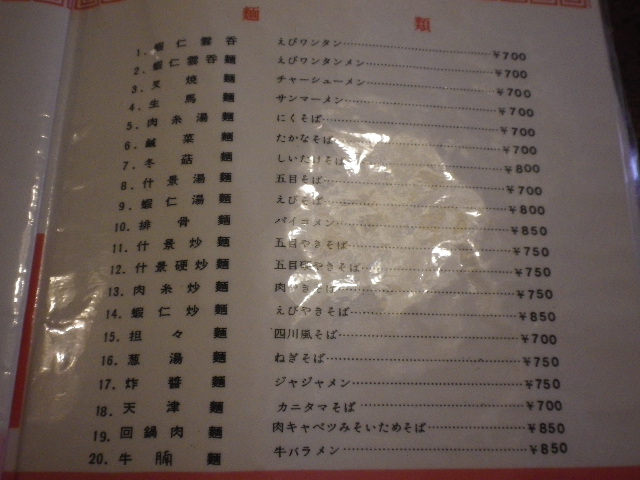 麵 類
1. 蝦仁雲呑 えびワンタン ¥700
2. 蝦仁雲呑麵 えびワンタンメン ¥700
3. 叉燒麵 チャーシューメン ¥700
4. 生馬麵 サンマーメン ¥700
5. 肉糸湯麵 にくそば ¥700
6. 鹹菜麵 たかなそば ¥700
7. 冬菇麵 しいたけそば ¥800
8. 什景湯麵 五目そば ¥700
9. 蝦仁湯麵 えびそば ¥800
10. 排骨麵 パイコメン ¥850
11. 什景炒麵 五目やきそば ¥750
12. 什景硬炒麵 五目硬やきそば ¥750
13. 肉糸炒麵 肉やきそば ¥750
14. 蝦仁炒麵 えびやきそば ¥850
15. 担々麵 四川風そば ¥700
16. 葱湯麵 ねぎそば ¥750
17. 炸醬麵 ジャジャメン ¥750
18. 天津麵 カニタマそば ¥700
19. 回鍋肉麵 肉キャベツみそいためそば ¥850
20. 牛腩麵 牛バラメン ¥850